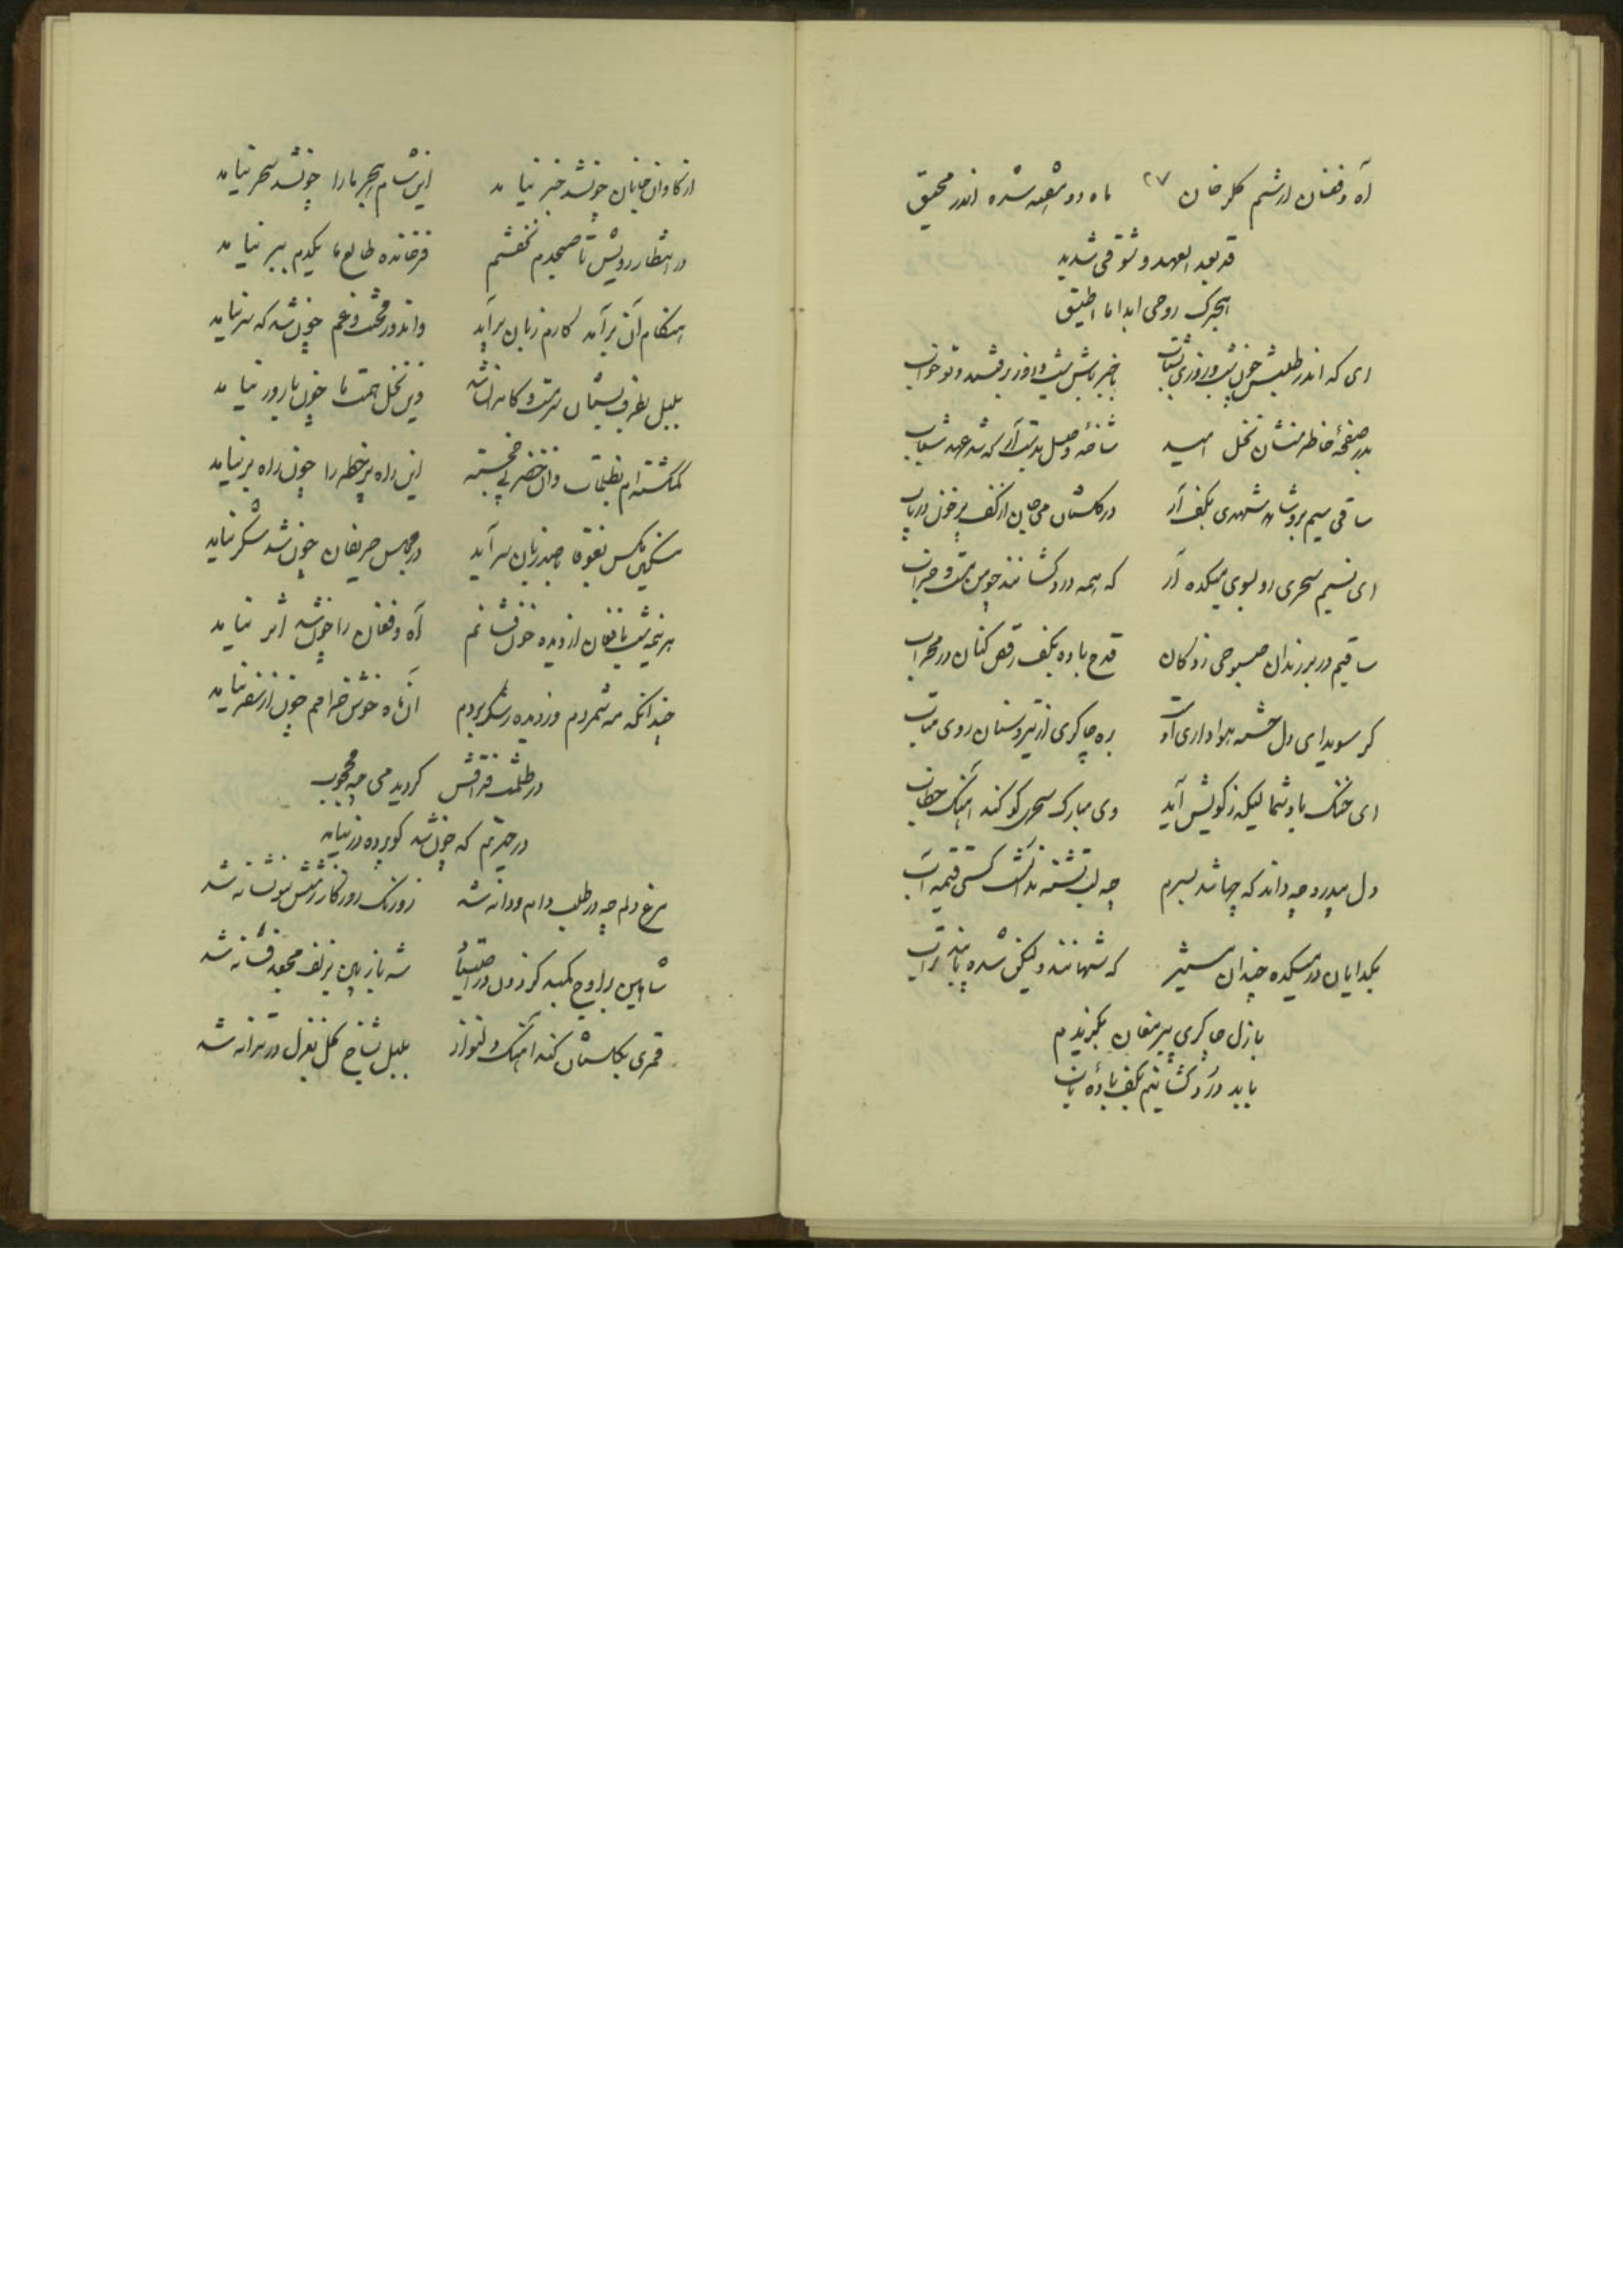 آه و فغان از ستم گلرخان ۲۷ ماه دو هفته شده اندر محیق
قد بعد العهد و شوقی شدید
هجرک روحی ابدا ما اطیق
ای که اندر طلبش چون شب و روزی بشتاب باخبر باش شب و روز برفتند و تو خواب
بدر صفحهٔ خاطر منشان نخل امید شاخه وصل بدست آر که شد عهد شباب
ساقی سیم بر و شاهد شهدی بکف آر در گلستان می از کف پر خون دریاب
ای نسیم سحری رو بسوی میکده آر که همه دردکشانند چو من مست و خراب
ساقیم در بر رندان صبوحی زدگان قدح باده بکف رقص کنان در محراب
گر سویدای دل چشمه هواداری اوست ره چاکری از روی متاب
ای خنک باد شما لیکه ز کویش آید وی مبارک سحری کو کند آهنگ خطاب
دل بیدرد چه داند که چها شد بسرم چه لب تشنه
بگدایان در میکده چندان مستیز که شهانند ولیکن شده پابند تراب
بازل چاکری پیر مغان بگزیدم
باید درد کشانیم بکف بادهٔ ناب
از کاروان جانان چونشد خبر نیامد این شام هجر ما را چونشد سحر نیامد
در انتظار رویش تا صبحدم نخفتم فرخنده طالع ما یکدم ببر نیامد
هنگام آن برآمد کارم زبان برآید واندور محنت و غم چون شد که سر نیامد
بلبل بطرف بستان سرمست و کامران شد وین نخل همت ما چون بارور نیامد
گمگشته‌ام بظلمات وان خضر پی خجسته این راه پر خطر را چون راه بر نیامد
مسکین مگس بغوغا چند زبان سرآید در مجلس حریفان چون شد شکر نیامد
هر نیمه شب بافغان از دیده خون فشانم آه و فغان را چون شد اثر نیامد
چندانکه مه شمردم وز دیده رشک بردم آن ماه خوش خرامم چون از سفر نیامد
در ظلمت فراقش گردید می چه محجوب
در حیرتم که چون شد کو پرده در نیامد
مرغ دلم چه در طلب دام و دانه شد زورنگ روزگار زمتش نشانه شد
شاهین براوج کنبد گردون شه باز بین بزلف مجعد فسانه شد
قمری بگلستان کند آهنگ دلنواز بلبل بشاخ گل بغزل در ترانه شد